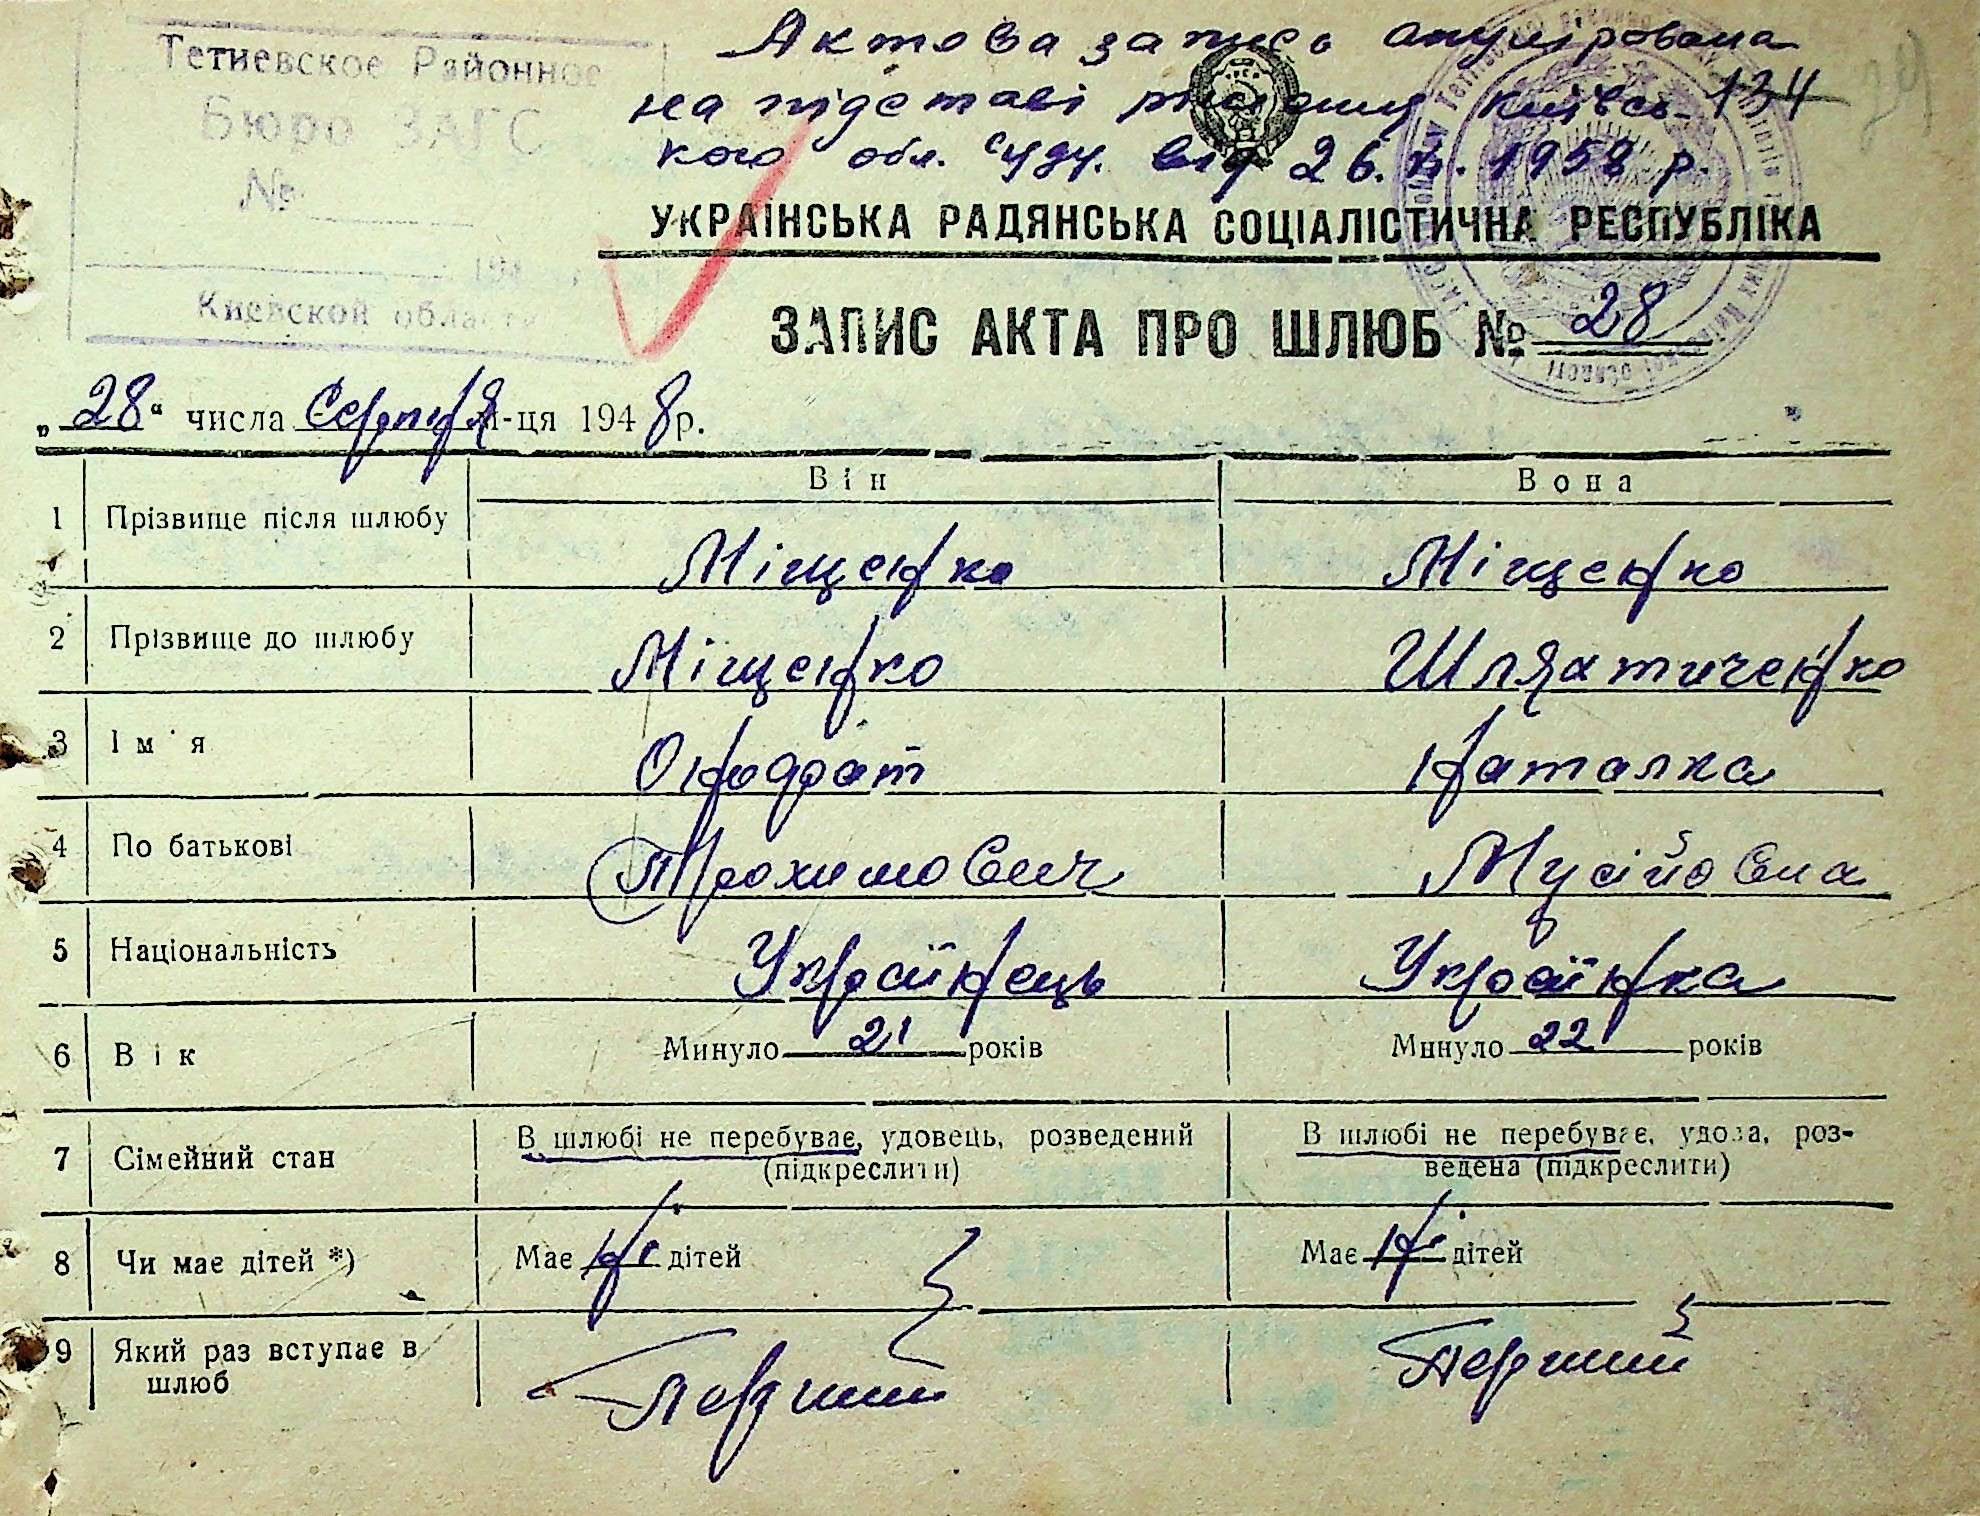 Тетиевское Районное
Бюро ЗАГС
№
194
Киевской области
Актова запись анулірована
на підставі рішення Київсь- 134
кого обл. суду. від 26. 1958 р.
29
УКРАЇНСЬКА РАДЯНСЬКА СОЦІАЛІСТИЧНА РЕСПУБЛІКА
ЗАПИС АКТА ПРО ШЛЮБ № 28
„28“ числа Серпня м-ця 1948 р.
Він Вона
1 Прізвище після шлюбу Міщенко Міщенко
2 Прізвище до шлюбу Міщенко Шляхтиченко
3 Ім'я Онодрат Наталка
4 По батькові Трохимович Мусійовна
5 Національність Українець Українка
6 Вік Минуло 21 років Минуло 22 років
7 Сімейний стан В шлюбі не перебуває, удовець, розведений (підкреслити) В шлюбі не перебуває, удова, роз-
ведена (підкреслити)
8 Чи має дітей *) Має Ні дітей Має Ні дітей
9 Який раз вступає в шлюб Перший Перший